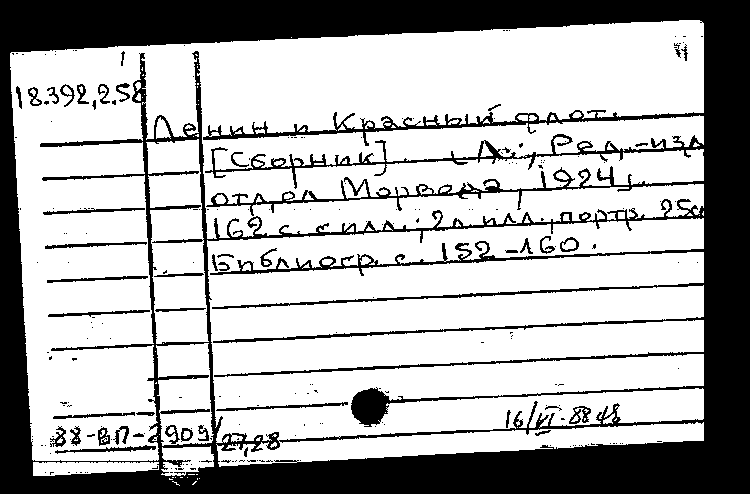 18.392,2.58
Ленин и Красный флот.
[Сборник]. Л., Ред.-изд
отдел Морведа, 1924.
162 с. с илл.; 2 л. илл., портр. 25с
Библиогр. с. 152-160.
16/VI-88
88-ВП-2909/27,28